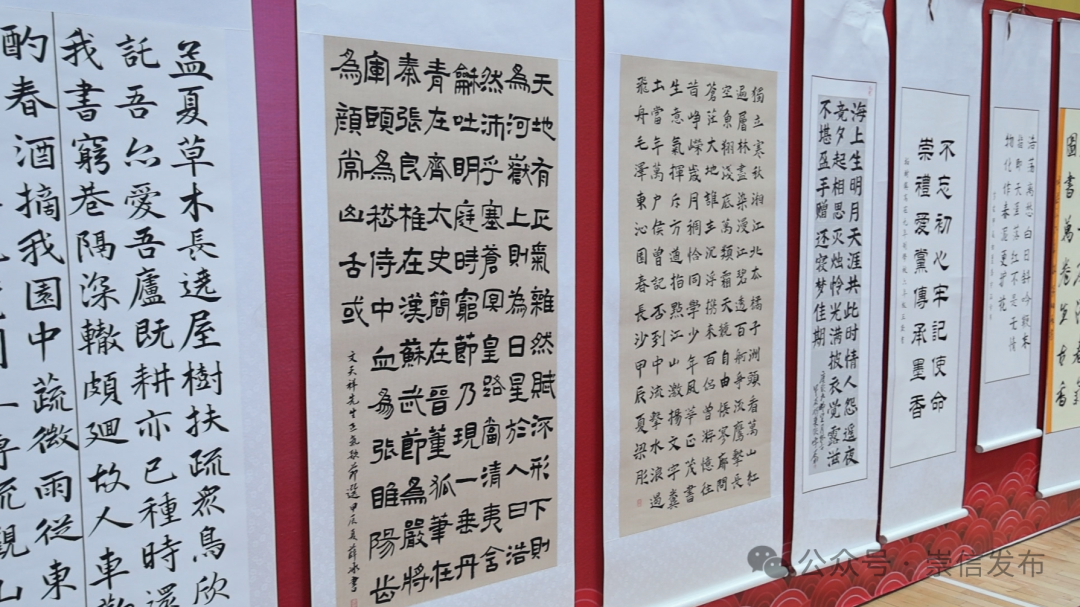 孟夏草木長遶屋樹扶疏眾鳥欣
託吾亦愛吾廬既耕亦已種時還
我書窮巷隔深轍頗迴故人車歡
酌春酒摘我園中蔬微雨從東
天地有正氣雜然賦流形下則
為河嶽上則為日星於人曰浩
然沛乎塞蒼冥皇路當清夷含
龢吐明庭時窮節乃現一垂丹
青在齊太史簡在晉董狐筆在
秦張良椎在漢蘇武節為嚴將
軍頭為嵇侍中血為張睢陽齒
為顏常山舌或
文天祥先生正氣歌節選甲辰夏薛永書
獨立寒秋湘江北去橘子洲頭看萬山紅
遍層林盡染漫江碧透百舸爭流鷹擊長
空魚翔淺底萬類霜天競自由悵寥廓問
蒼茫大地誰主沉浮携來百侶曾游憶往
昔崢嶸歲月稠恰同學少年風華正茂書
生意氣揮斥方遒指點江山激揚文字糞
土當年萬户侯曾記否到中流擊水浪遏
飛舟毛澤東沁園春長沙甲辰夏梁彤
海上生明月天涯共此时情人怨遥夜
竟夕起相思灭烛怜光满披衣觉露滋
不堪盈手赠还寝梦佳期
不忘初心牢記使命
崇禮愛黨傳承墨香
浩荡离愁白日斜吟鞭东
指即天涯落红不是无情
物化作春泥更护花
圖書萬卷
公众号·崇信发布